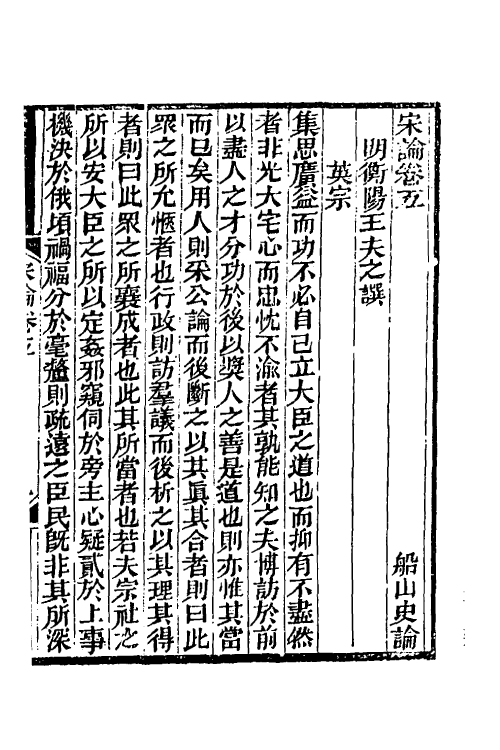 宋論卷五
船山史論
明衡陽王夫之譔
英宗
集思廣益而功不必自己立大臣之道也而抑有不盡然
者非光大宅心而忠忱不渝者其孰能知之夫博訪於前
以盡人之才分功於後以獎人之善是道也則亦惟其當
而已矣用人則采公論而後斷之以其眞其合者則曰此
眾之所允愜者也行政則訪羣議而後析之以其理其得
者則曰此眾之所襄成者也此其所當者也若夫宗社之
所以安大臣之所以定姦邪窺伺於旁主心疑貳於上事
機決於俄頃禍福分於毫釐則疏遠之臣民旣非其所深
宋論卷五
一